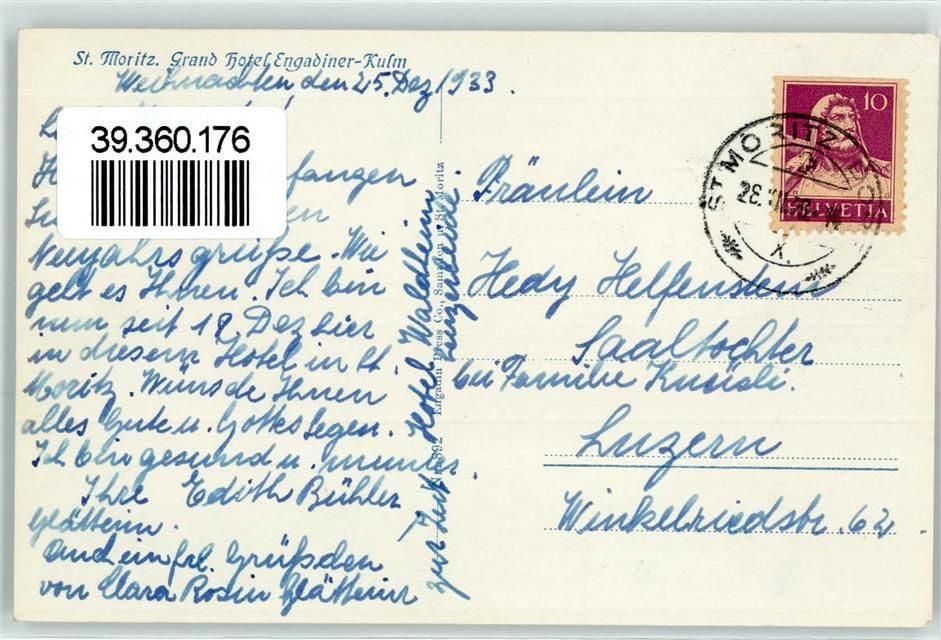 St. Moritz. Grand Hotel Engadiner-Kulm
Weihnachten den 25. Dez 1933.
39.360.176
fangen
Neujahrsgrüße. Wie
geht es Ihnen. Ich bin
nun seit 18. Dez hier
in diesem Hotel in St.
Moritz. Wünsche Ihnen
alles Gute u. Gottes Segen.
Ich bin gesund u. munter.
Ihre Edith Bühler
Glätterin.
Auch ein frl. Grüßchen
von Clara Rosin Glätterin
zur Zeit Hotel Waldheim
892 Engadin Press Co., Samaden u. St. Moritz
10
HELVETIA
ST. MORITZ
Fräulein
Hedy Helfenstein
Saaltochter
bei Familie Knüsli.
Luzern
Winkelriedstr. 62